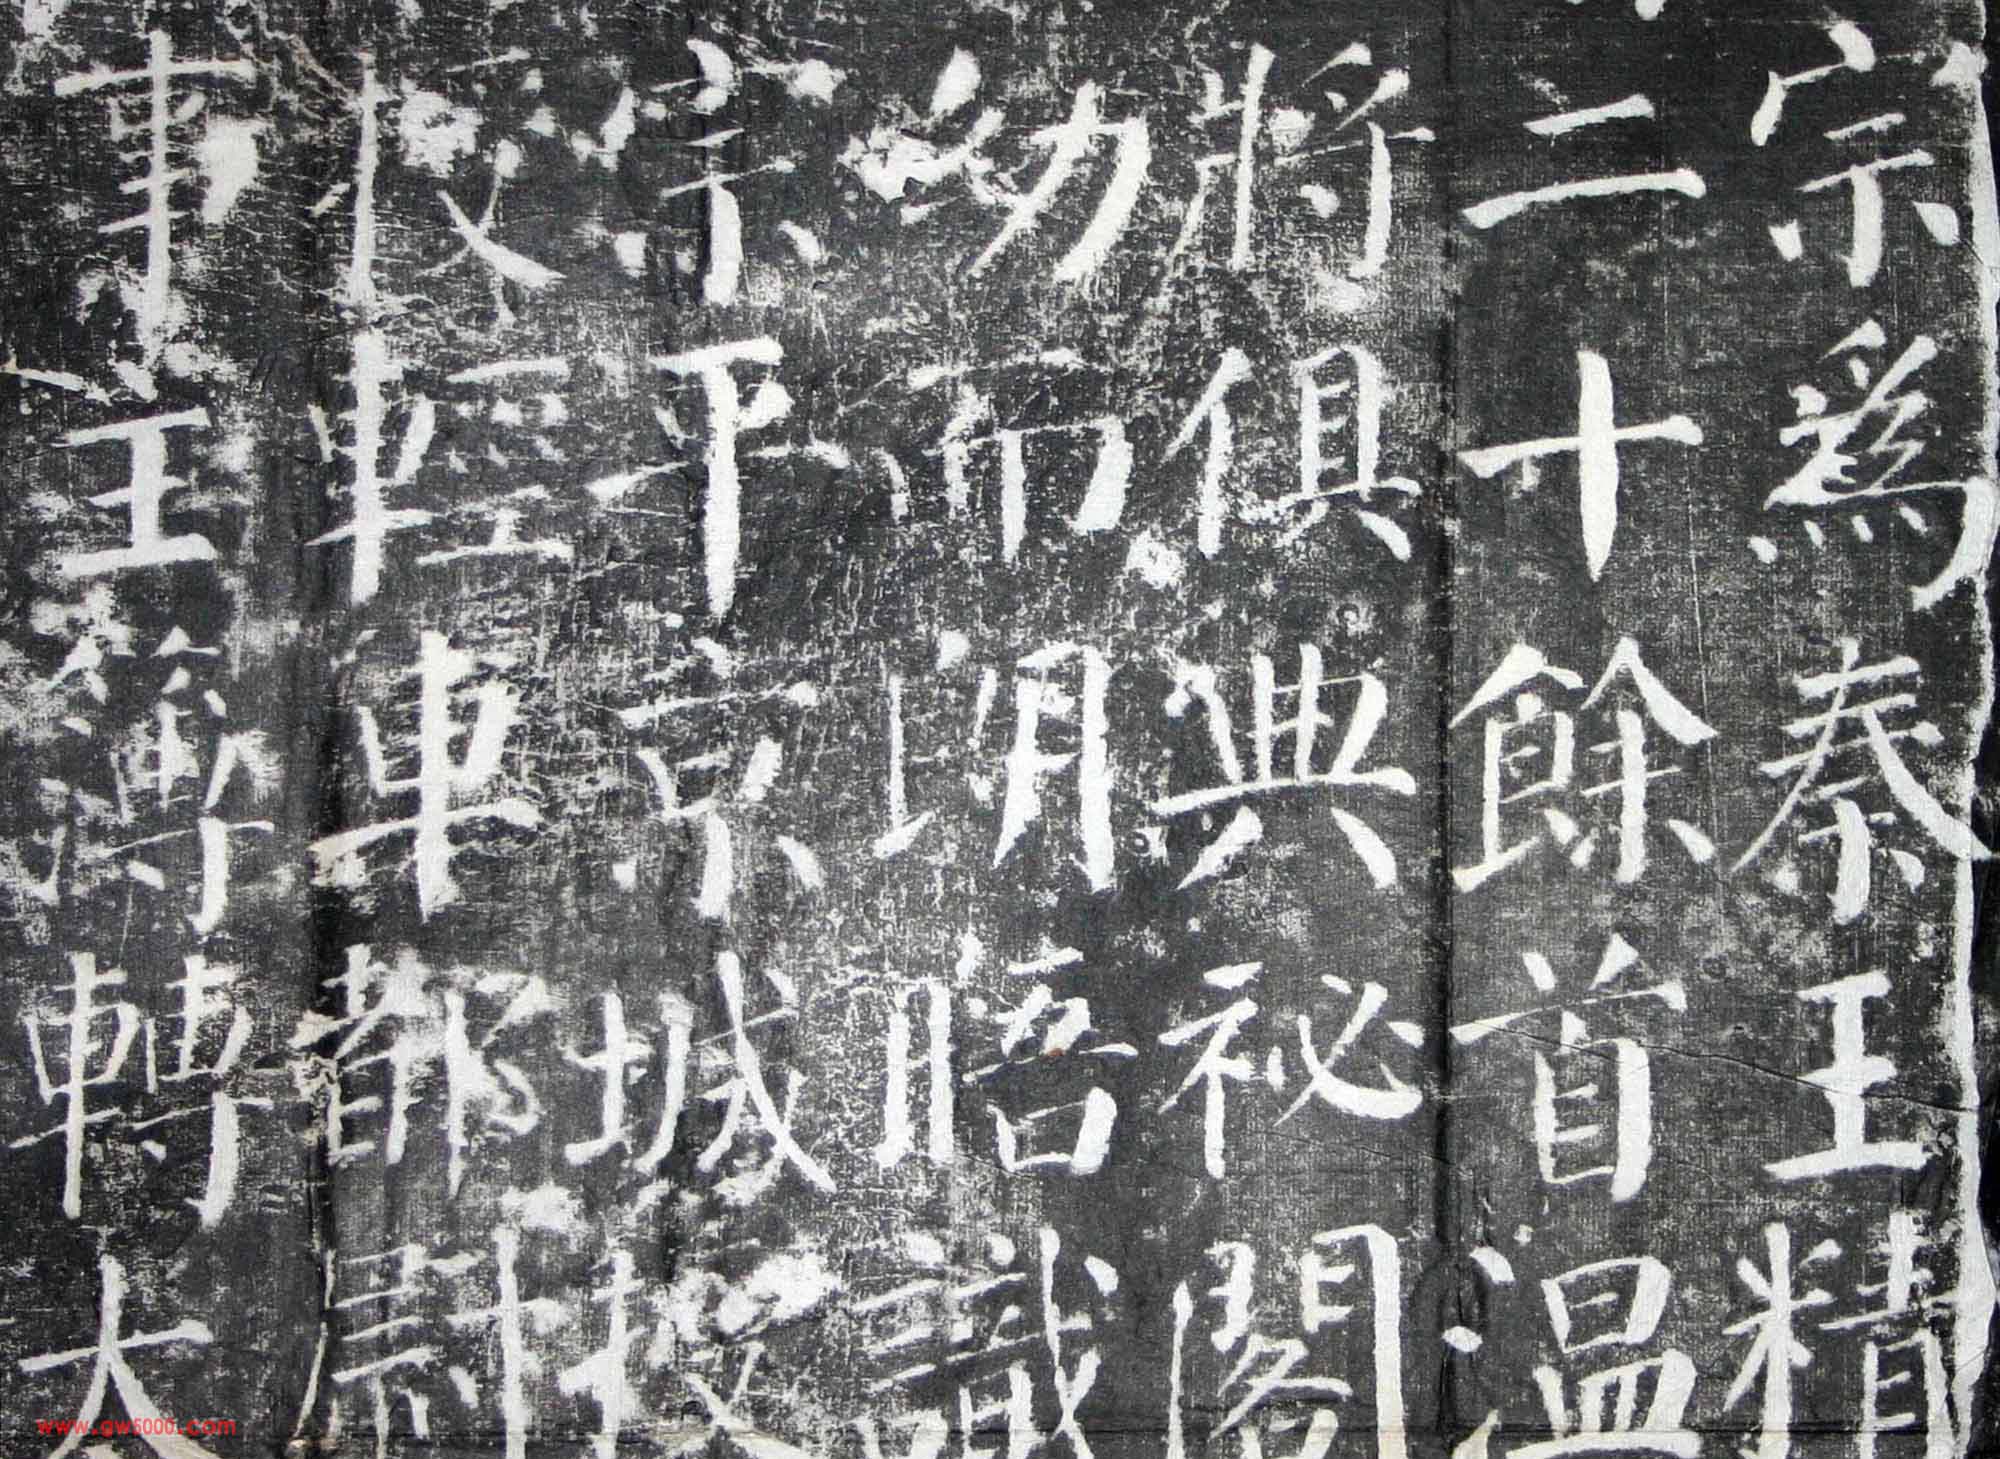 宗為秦王精
二十餘首溫
將俱典祕閣
幼而朗晤識
宗平京城授
授輕車都尉
事主簿轉太
www.gw5000.com